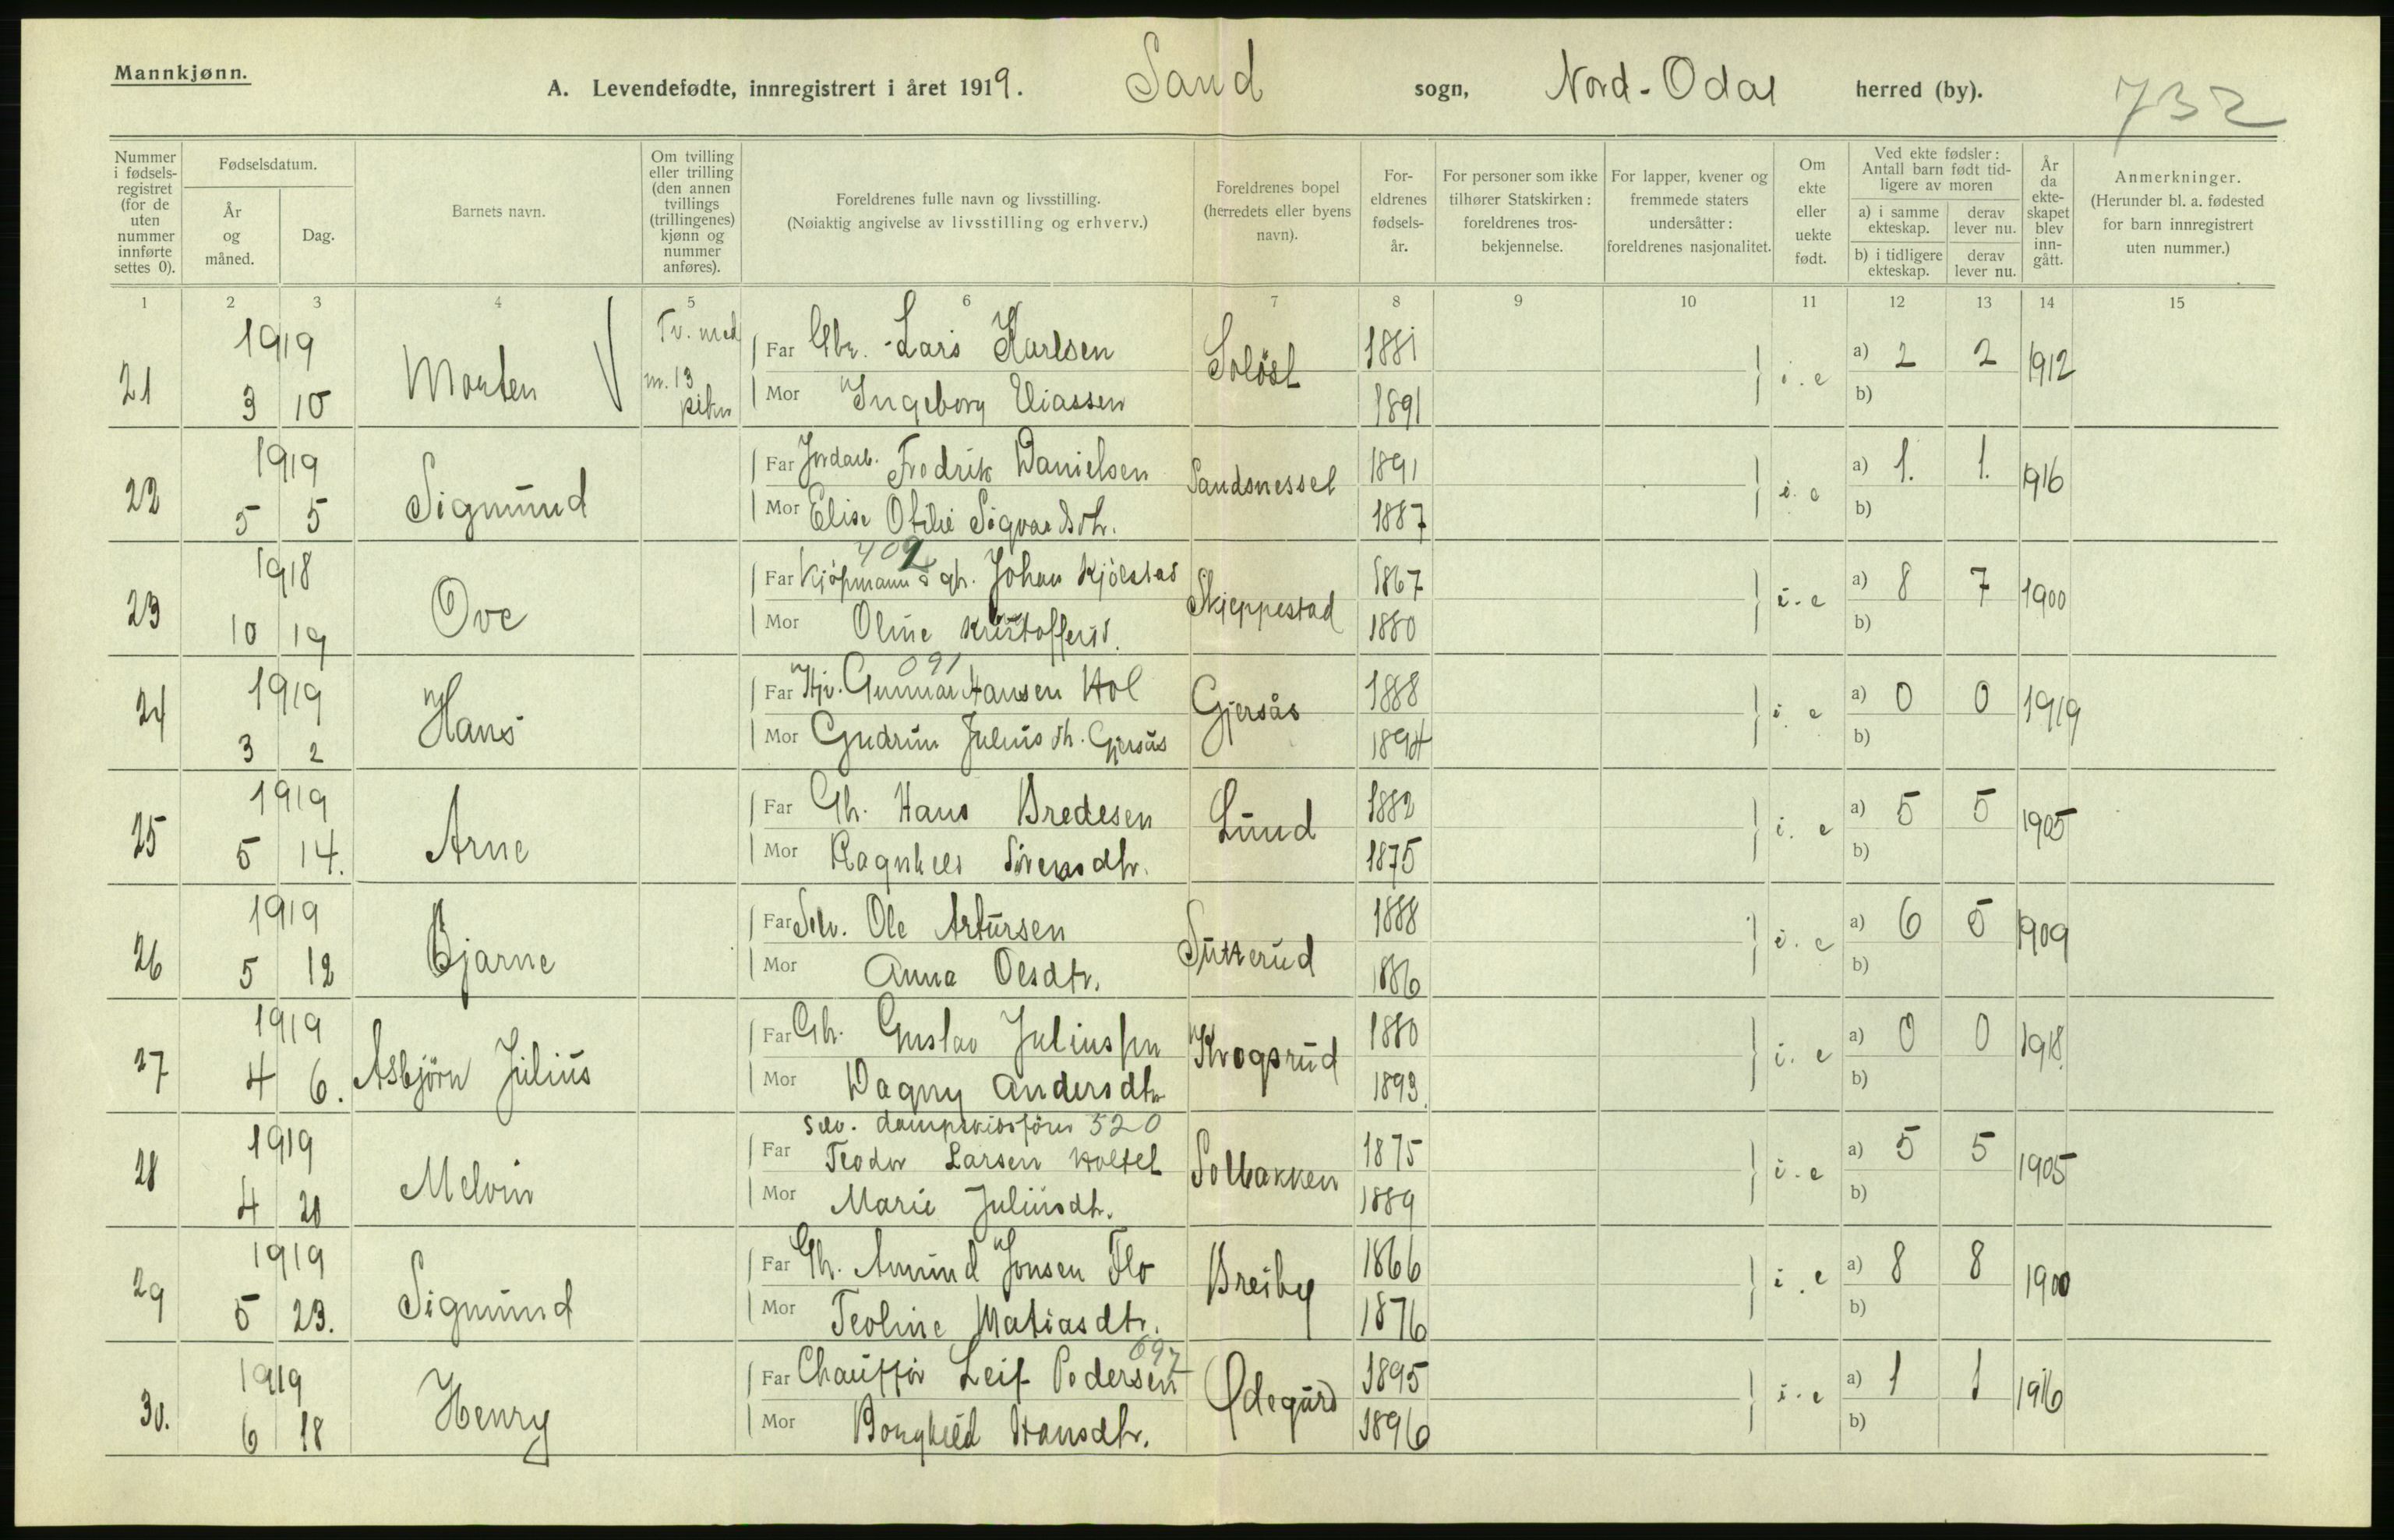 Mannkjønn.
A. Levendefødte, innregistrert i året 1919. Sand sogn, Nord-Odal herred (by). 732
Nummer i fødselsregistret (for de uten nummer innførte settes 0).
Fødselsdatum.
År og måned.
Dag.
Barnets navn.
Om tvilling eller trilling (den annen tvillings (trillingenes) kjønn og nummer anføres).
Foreldrenes fulle navn og livsstilling.
(Nøiaktig angivelse av livsstilling og erhverv.)
Foreldrenes bopel (herredets eller byens navn).
Foreldrenes fødselsår.
For personer som ikke tilhører Statskirken: foreldrenes trosbekjennelse.
For lapper, kvener og fremmede staters undersåtter: foreldrenes nasjonalitet.
Om ekte eller uekte født.
Ved ekte fødsler: Antall barn født tidligere av moren
a) i samme ekteskap. derav lever nu.
b) i tidligere ekteskap. derav lever nu.
År da ekteskapet blev inngått.
Anmerkninger.
(Herunder bl. a. fødested for barn innregistrert uten nummer.)
1 2 3 4 5 6 7 8 9 10 11 12 13 14 15
21 1919 3 10 Morten Tv. med nr. 13
Far Gbr. Lars Karlsen Soløst 1881 i.e a) 2 2 1912
Mor Ingeborg Eliassen 1891 b)
22 1919 5 5 Sigmund
Far Jordarb. Fredrik Danielsen Sandsnesset 1891 i.e a) 1. 1. 1916
Mor Elise Otilie Sigvardsdtr. 1887 b)
402
23 1918 10 19 Ove
Far Kjøpmann & gb. Johan Kjølstad Skjeppestad 1867 i.e a) 8 7 1900
Mor Oline Kristoffersd. 1880 b)
091
24 1919 3 2 Hans
Far Gunnar Hansen Hol Gjersås 1888 i e a) 0 0 1919
Mor Gudrun Juliusdt. Gjersås 1894 b)
25 1919 5 14. Arne
Far Gb. Hans Bredesen Lund 1882 i. e a) 5 5 1905
Mor Ragnhild Sivertsdtr. 1875 b)
26 1919 5 12 Bjarne
Far Selv. Ole Artursen Sutterud 1888 i. e a) 6 5 1909
Mor Anna Olsdtr. 1886 b)
27 1919 4 6. Asbjörn Julius
Far Gb. Gustav Juliussen Krogsrud 1880 i. e a) 0 0 1918
Mor Dagny Andersdtr 1893. b)
Selv. dampskibsfører 520
28 1919 4 20 Melvin
Far Teodor Larsen Holtet Solbakken 1875 i.e a) 5 5 1905
Mor Marie Juliusdt. 1889 b)
29 1919 5 23. Sigmund
Far Gb. Amund Jonsen Flo Breiby 1866 i.e a) 8 8 1900
Mor Teoline Matiasdtr. 1876 b)
697
30. 1919 6 18 Henry
Far Chauffør Leif Pedersen Ødegård 1895 i.e a) 1 1 1916
Mor Borghild Hansdtr. 1896 b)